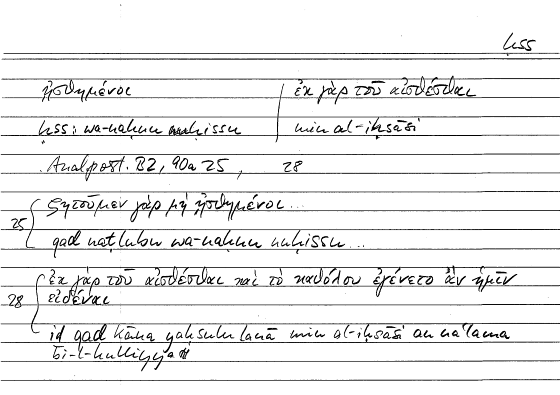 ḥss
ᾐσθημένοι ἐκ γὰρ τοῦ αἰσθέσθαι
ḥss: wa-naḥnu nuḥissu min al-iḥsāsi
Anal. post. B2, 90a 25, 28
25 ζητοῦμεν γὰρ μὴ ᾐσθημένοι...
qad naṭlubu wa-naḥnu nuḥissu...
28 ἐκ γὰρ τοῦ αἰσθέσθαι καὶ τὸ καθόλου ἐγένετο ἂν ἡμῖν
εἰδέναι
iḏ qad kāna yaḥṣulu lanā min al-iḥsāsi an naʿlama